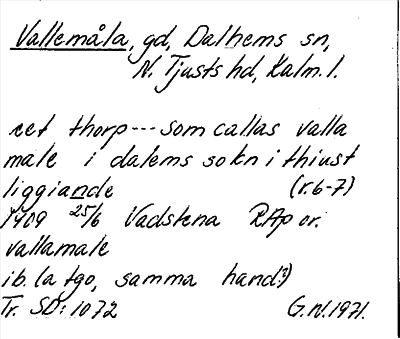 Vallemåla, gd, Dalhems sn,
N. Tjusts hd, Kalm. l.
eet thorp --- som callas valla
male i dalems sokn i thiust
liggiande (r. 6-7)
1409 25/6 Vadstena RAp or.
vallamale
ib. la tgo, samma hand?)
Tr. SD: 1072 G.N. 1971.